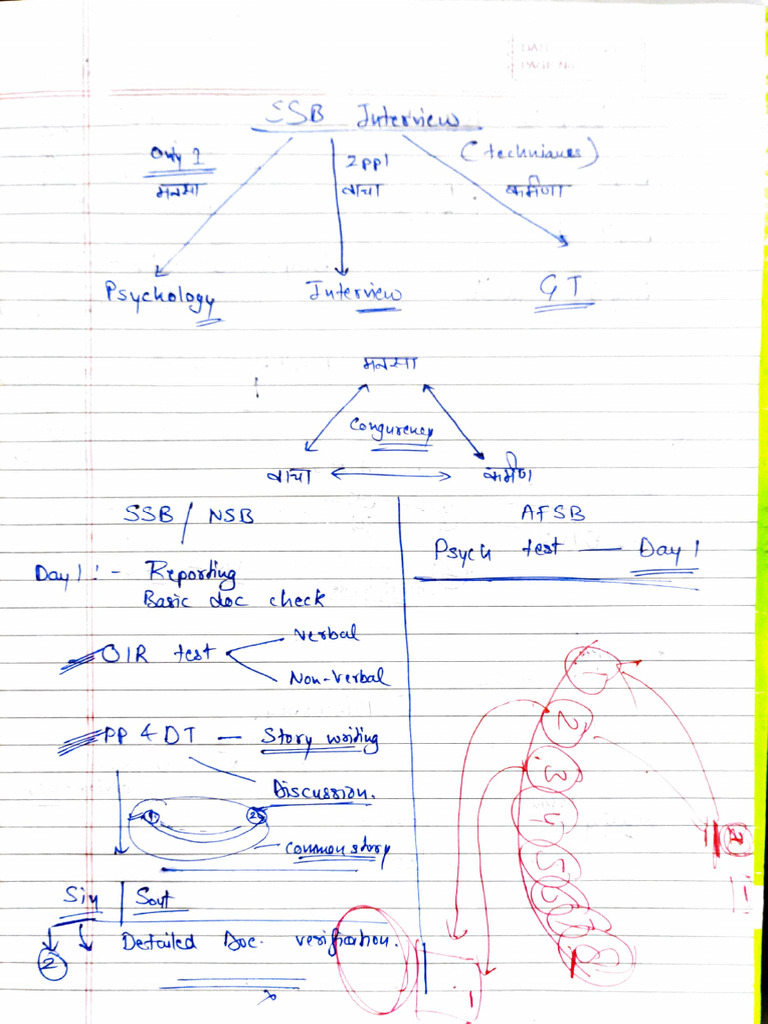 SSB Interview
Only 1 2 ppl (techniques)
मनसा वाचा कर्मणा
Psychology Interview GT
मनसा
Congurency
वाचा कर्मणा
SSB / NSB AFSB
Psych test — Day 1
Day 1 :- Reporting
Basic doc check
OIR test Verbal
Non-Verbal
PP & DT — Story writing
Discussion.
Common story
Sin | Sout
2 Detailed Doc. verification.
1
2
3
4
5